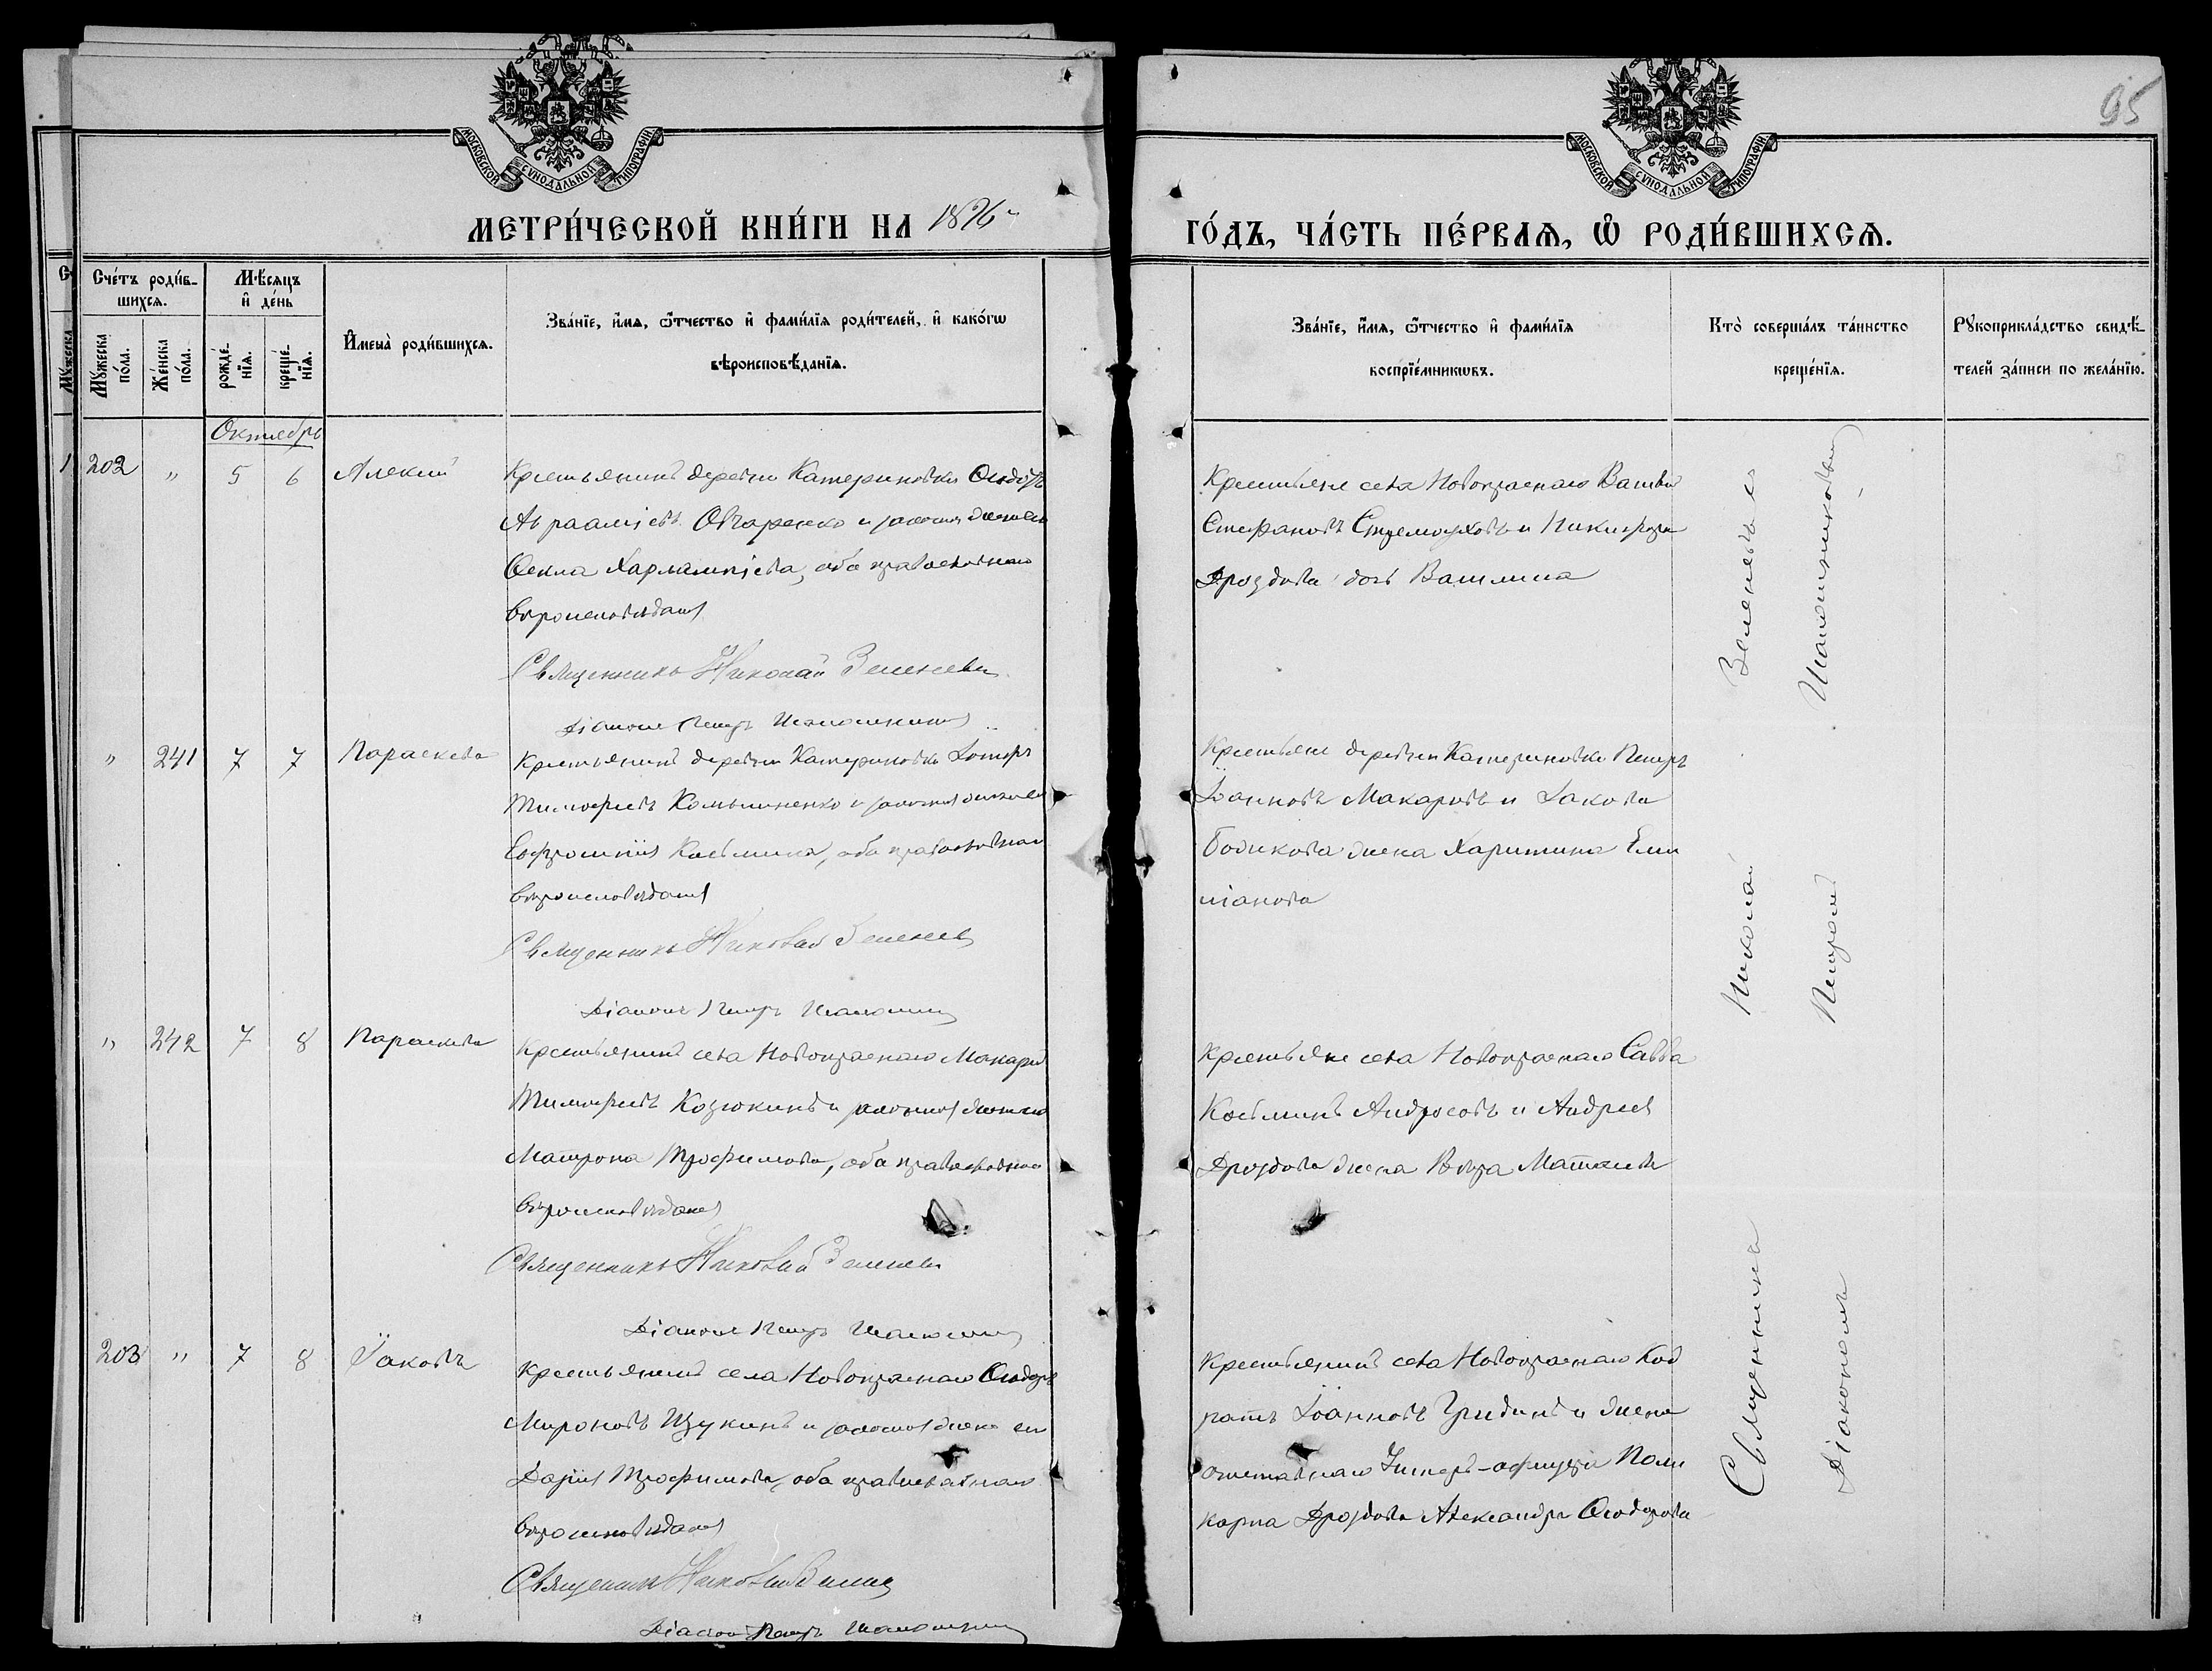 95
МОСКОВСКОЙ СѴНОДАЛЬНОЙ ТИПОГРАФІИ
МОСКОВСКОЙ СѴНОДАЛЬНОЙ ТИПОГРАФІИ
МЕТРИ́ЧЕСКОЙ КНИ́ГИ НА 1876
ГО́ДЪ, ЧА́СТЬ ПЕ́РВАЯ, Ѡ РОДИ́ВШИХСЯ.
Сче́тъ роди́в-
шихся.
Мꙋжеска по́ла.
Же́нска по́ла.
Мѣ́сяцъ
и де́нь
рожде́-
нїя.
креще́-
нїя.
Имена̀ роди́вшихся.
Зва́нїе, и́мя, ѻ҆́тчество и фами́лїя роди́телей, и како́гѡ
вѣроисповѣ́данїя.
Зва́нїе, и́мя, ѻ҆́тчество и фами́лїя
воспрїе́мникѡвъ.
Кто̀ соверша́лъ та́инство
креще́нїя.
Рꙋкоприкла́дство свидѣ́-
телей за́писи по жела́нїю.
Октябрь
202 " 5 6 Алексій
Крестьянинъ деревни Катериновки Ѳеодоръ
Авраамiевъ Овчаренко и законная жена его
Ѳекла Харлампiева, оба православнаго
вѣроисповѣданiя
Священникъ Николай Зеленевъ
Дiаконъ Петръ
Крестьяне села Новокраснаго
Стефановъ и Никифора
Дроздова дочь Василиса
" 241 7 7 Параскева
Крестьянинъ деревни Катериновки
Тимофеевъ и законная жена его
Евфросинiя Косьмина, оба православнаго
вѣроисповѣданiя
Священникъ Николай Зеленевъ
Дiаконъ Петръ
Крестьяне деревни Катериновки Петръ
Iоанновъ Макаровъ и Iакова
Бодикова жена Харитина Епи
фанова
" 242 7 8 Параскева
Крестьянинъ села Новокраснаго Макарiй
Тимофеевъ Козюкинъ и законная жена его
Матрона Трофимова, оба православнаго
вѣроисповѣданiя
Священникъ Николай Зеленевъ
Дiаконъ Петръ
Крестьяне села Новокраснаго Савва
Косьминъ Андросовъ и Андрея
Дроздова жена Вѣра Матвеева
203 " 7 8 Iаковъ
Крестьянинъ села Новокраснаго Ѳеодоръ
Мироновъ Щукинъ и законная жена его
Дарiя Трофимова, оба православнаго
вѣроисповѣданiя
Священникъ Николай Зеленевъ
Дiаконъ Петръ
Крестьянинъ села Новокраснаго Код
ратъ Iоанновъ Гридинъ и жена
отставнаго Унтеръ-офицера Поли
карпа Дроздова Александра Ѳеодорова
Священникъ Николай Зеленевъ съ
Дiакономъ Петромъ